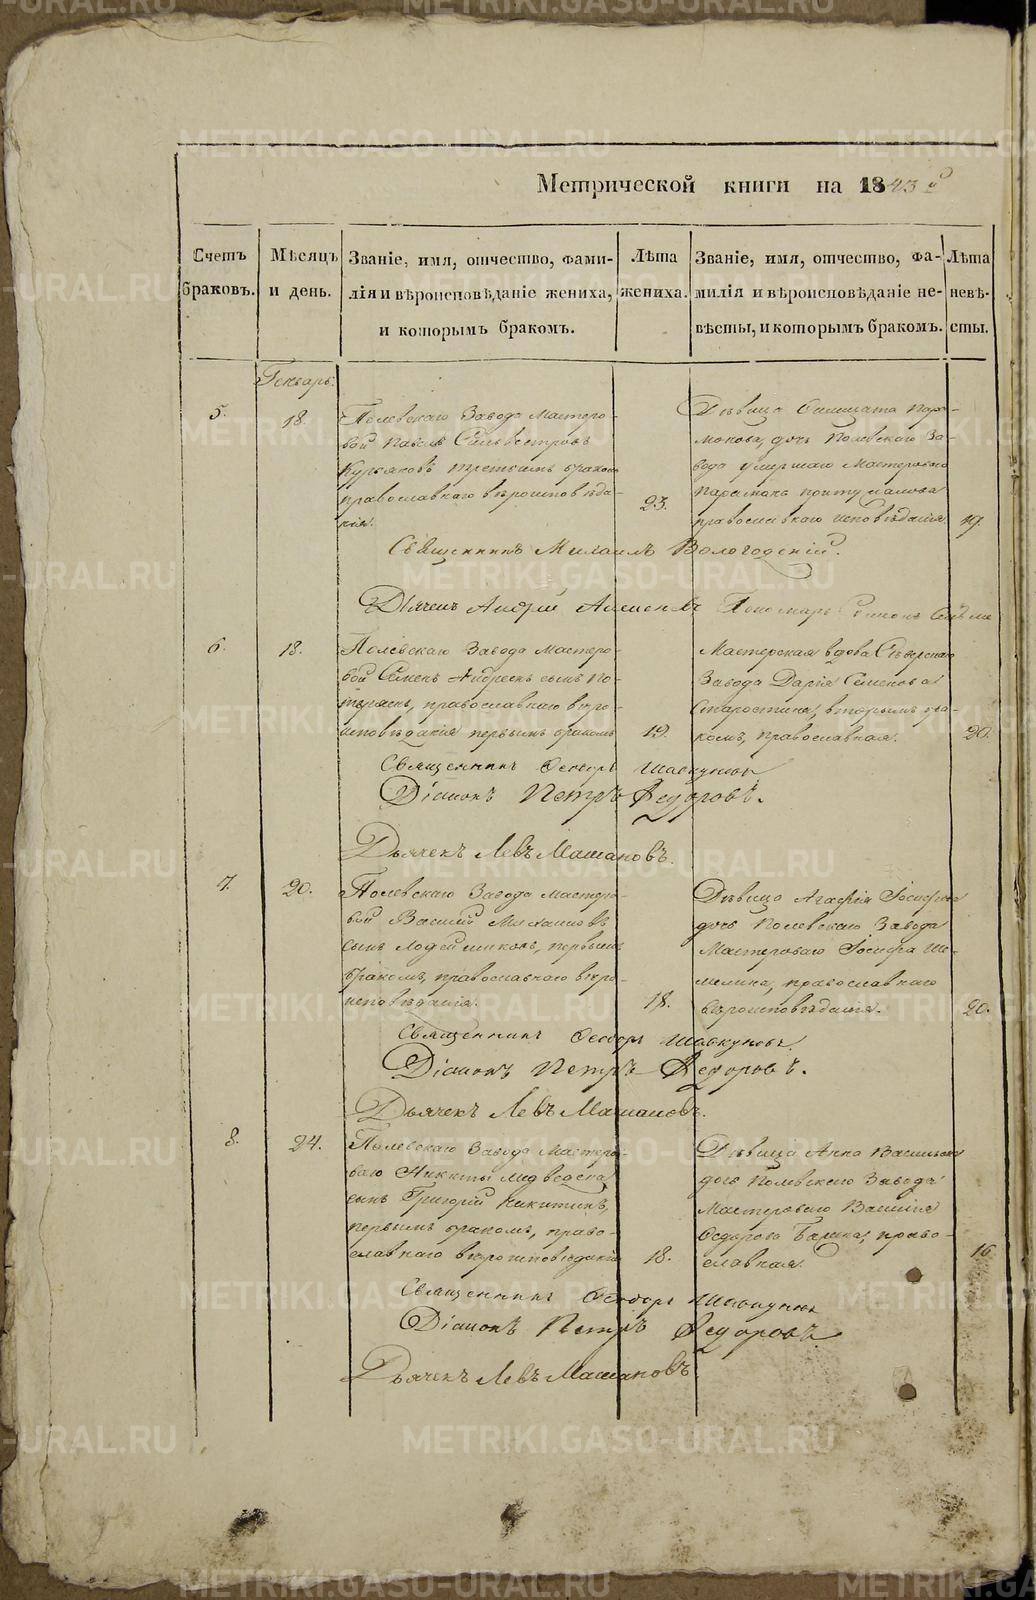 Метрической книги на 1843 й
Счетъ браковъ.
Мѣсяцъ и день.
Званіе, имя, отчество, фами-
лія и вѣроисповѣданіе жениха,
и которымъ бракомъ.
Лѣта
жениха.
Званіе, имя, отчество, фа-
милія и вѣроисповѣданіе не-
вѣсты, и которымъ бракомъ.
Лѣта
невѣ-
сты.
Генварь.
5.
18.
Полевскаго Завода Мастеро-
вой Павелъ Сильвестровъ
третьимъ бракомъ
православнаго вѣроисповѣда-
нія.
23.
Дѣвица Пара-
монова, дочь Полевского За-
вода умершаго Мастероваго
Парамона
православнаго исповѣданія
19.
Священникъ Михаилъ Вологодскій.
Дьячекъ Андрей Пономарь
6.
18.
Полевскаго Завода Мастеро-
вой Семенъ Андреевъ сынъ По-
православнаго вѣро-
исповѣданія первымъ бракомъ
19.
Мастерская вдова Сѣверскаго
Завода Дарія Семенова
Старостина, вторымъ бра-
комъ, православная.
20.
Священникъ Ѳеодоръ Шавкуновъ
Діаконъ Петръ Федоровъ.
Дьячекъ Левъ Машановъ.
7.
20.
Полевскаго Завода мастеро-
вой Василий Михаиловъ
сынъ первымъ
бракомъ, православнаго вѣро-
исповѣданія.
18.
Дѣвица Агафія Іосифова
дочь Полевскаго Завода
Мастероваго Іосифа Ше-
мелина, православнаго
вѣроисповѣданія.
20.
Священникъ Ѳеодоръ Шавкуновъ.
Діаконъ Петръ Федоровъ.
Дьячекъ Левъ Машановъ.
8.
24.
Полевскаго Завода Мастеро-
ваго Никиты Медведева
сынъ Григорій Никитинъ,
первымъ бракомъ, право-
славнаго вѣроисповѣданія
18.
Дѣвица Анна Васильева
дочь Полевскаго Завода
Мастероваго Василія
Ѳедорова право-
славная.
16
Священникъ Ѳеодоръ Шавкуновъ
Діаконъ Петръ Федоровъ.
Дьячекъ Левъ Машановъ.
METRIKI.GASO-URAL.RU